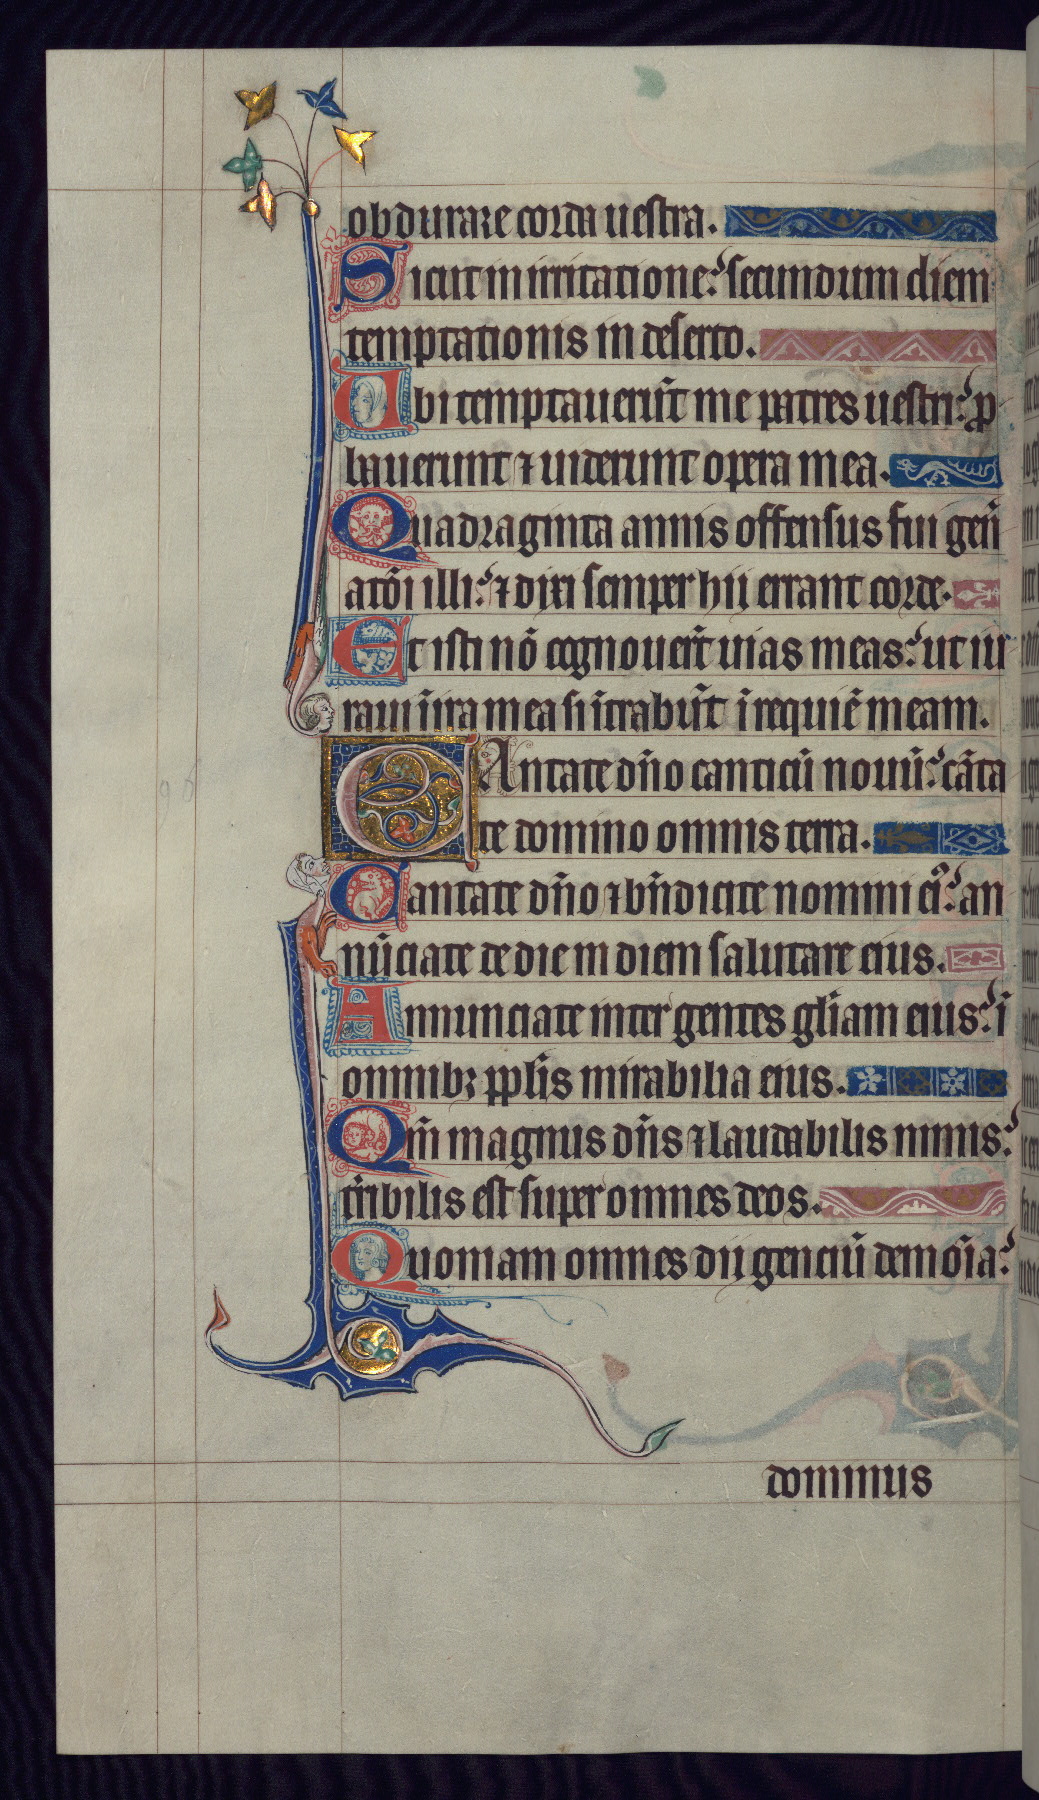 obdurare corda uestra.
Sicut in irritatione: secundum diem
temptationis in deserto.
Ubi temptauerūt me patres uestri: ꝓ
bauerunt ⁊ uiderunt opera mea.
Quadraginta annis offensus fui gen̄
atōi illi: ⁊ dixi semper hij errant corde.
Et isti nō cognouer̄t uias meas: ut iu
raui ī ira mea si ītrabūt ī requiē meam.
Cantate dn̄o canticū nouū: cāta
te domino omnis terra.
Cantate dn̄o ⁊ bn̄dicite nomini ei᷒: an
nūciate de die in diem salutare eius.
Annunciate inter gentes gl̄iam eius: ī
omnibꝫ ppl̄is mirabilia eius.
Qm̄ magnus dn̄s ⁊ laudabilis nimis:
tr̄ibilis est super omnes deos.
Quoniam omnes dij genciū demōia:
dominus